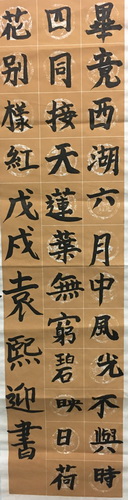 畢竟西湖六月中風光不與時
四同接天蓮葉無窮碧映日荷
花別樣紅戊戌袁熙迎書